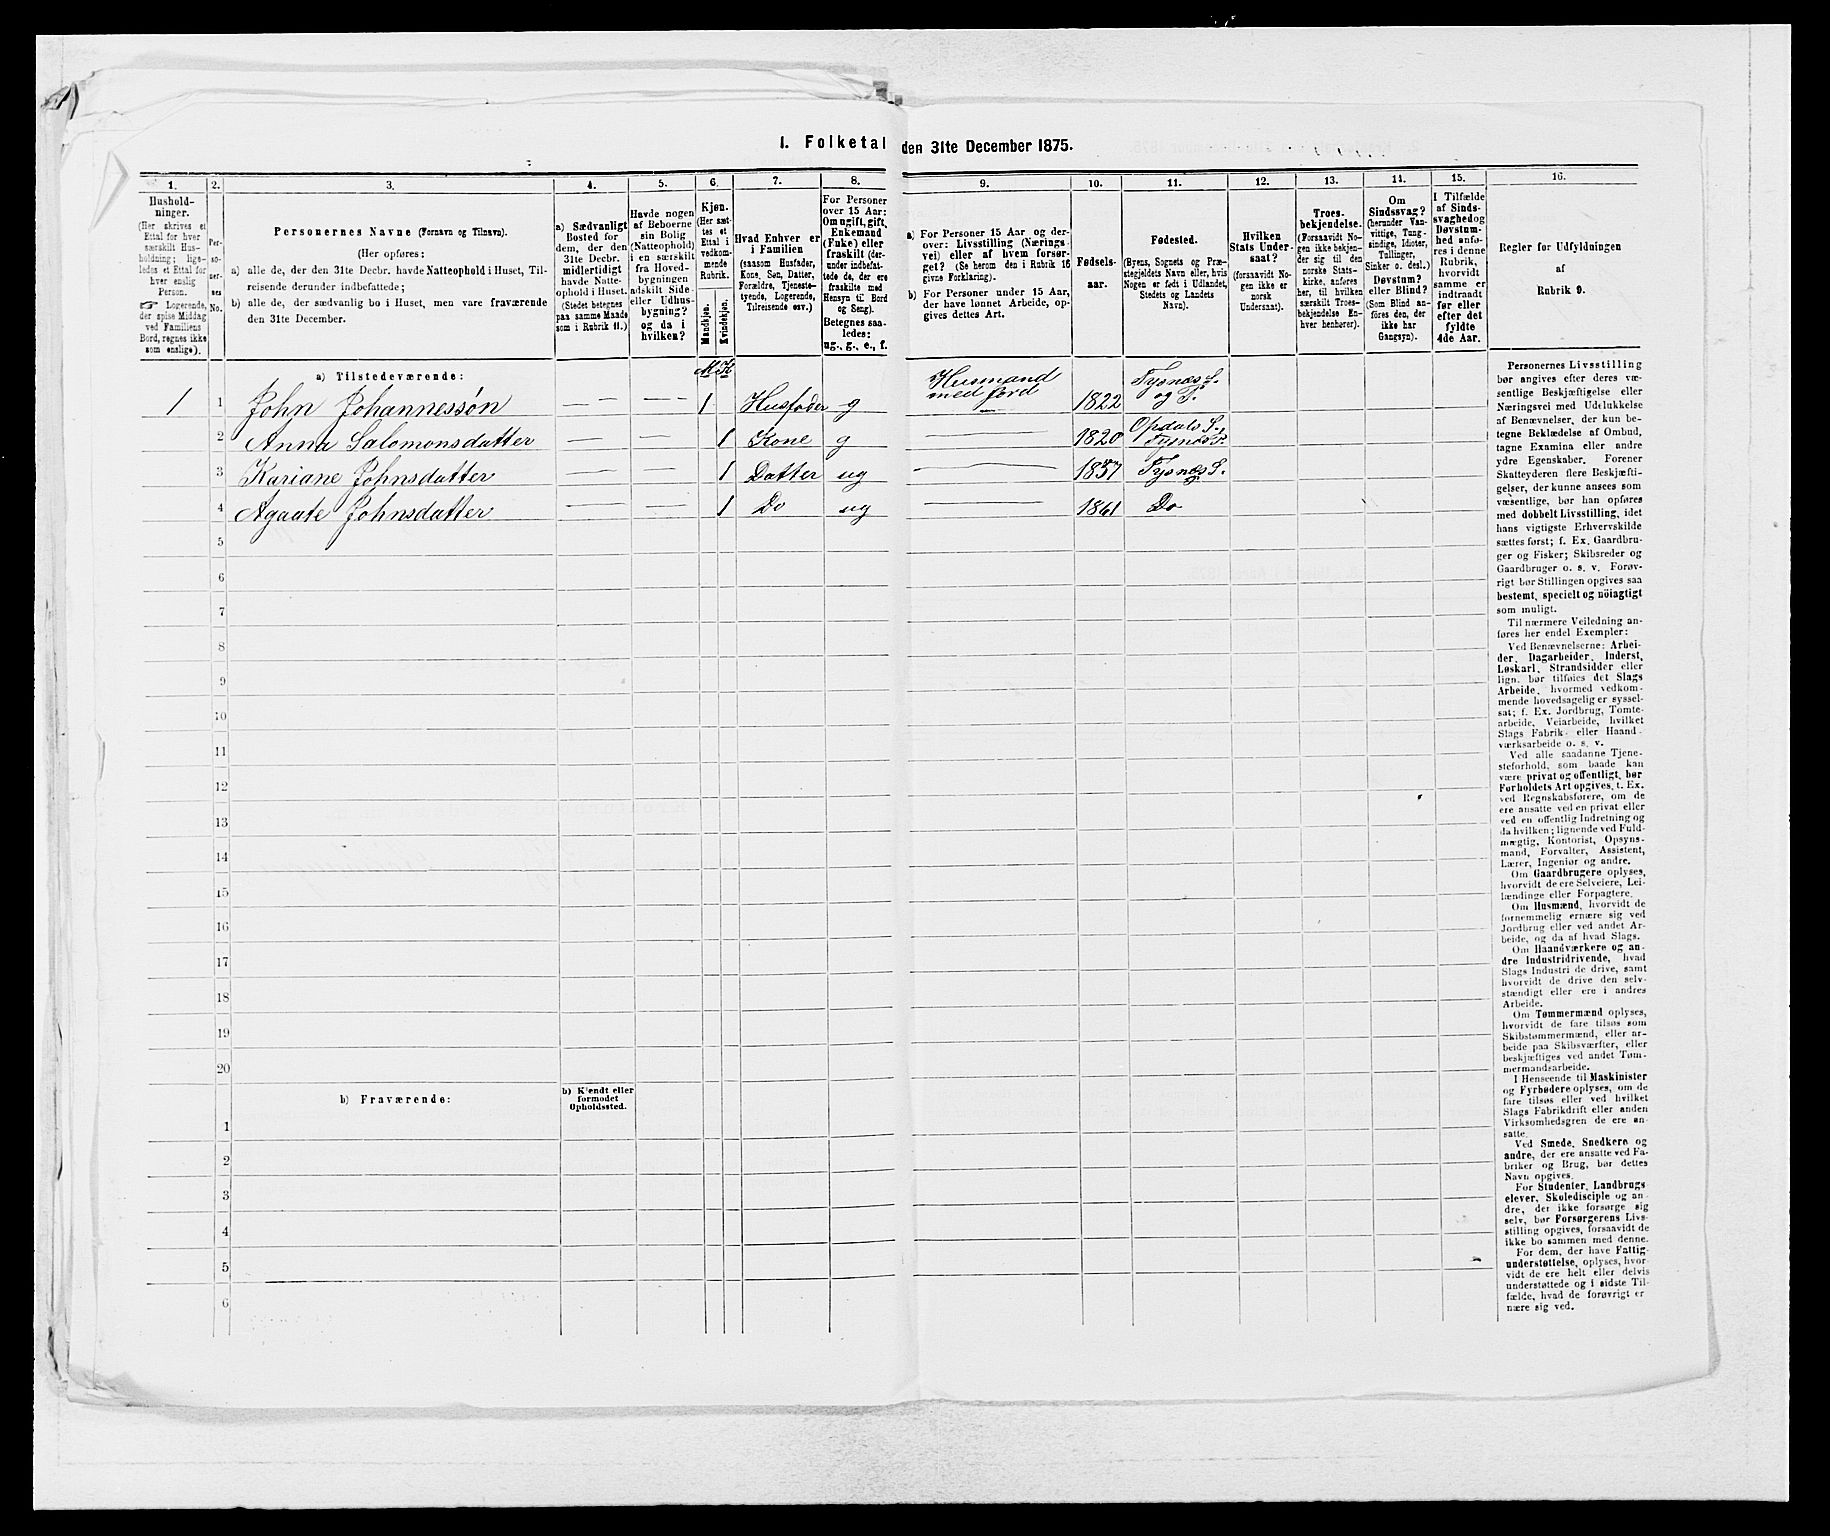 I. Folketal den 31te December 1875.
1. 2. 3. 4. 5. 6. 7. 8. 9. 10. 11. 12. 13. 14. 15. 16.
Hushold-
ninger.
(Her skrives et
Ettal for hver
særskilt Hus-
holdning; lige-
ledes et Ettal for
hver enslig
Person.
☞ Logerende,
der spise Middag
ved Familiens
Bord, regnes ikke
som enslige).
Per-
so-
ner-
nes
No.
Personernes Navne (Fornavn og Tilnavn).
(Her opføres:
a) alle de, der den 31te Decbr. havde Natteophold i Huset, Til-
reisende derunder indbefattede;
b) alle de, der sædvanlig bo i Huset, men vare fraværende
den 31te December.
a) Sædvanligt
Bosted for
dem, der den
31te Decbr.
midlertidigt
havde Natte-
ophold i Huset.
(Stedet betegnes
paa samme Maade
som i Rubrik 11.)
Havde nogen
af Beboerne
sin Bolig
(Natteophold)
i en særskilt
fra Hoved-
bygningen
adskilt Side-
eller Udhus-
bygning?
og da i
hvilken?
Kjøn.
(Her sæt-
tes et
Ettal i
vedkom-
mende
Rubrik.
Mandkjøn.
Kvindekjøn.
Hvad Enhver er
i Familien
(saasom Husfader,
Kone, Søn, Datter,
Forældre, Tjeneste-
tyende, Logerende,
Tilreisende osv.)
For Personer
over 15 Aar:
Om ugift, gift,
Enkemand
(Enke) eller
fraskilt (der-
under indbefat-
tede de, der ere
fraskilte med
Hensyn til Bord
og Seng).
Betegnes saa-
ledes:
ug., g., e., f.
a) For Personer 15 Aar og der-
over: Livsstilling (Nærings-
vei) eller af hvem forsør-
get? (Se herom den i Rubrik 16
givne Forklaring).
b) For Personer under 15 Aar,
der have lønnet Arbeide, op-
gives dettes Art.
Fødsels-
aar.
Fødested.
(Byens, Sognets og Præ-
stegjeldets Navn eller, hvis
Nogen er født i Udlandet,
Stedets og Landets
Navn).
Hvilken
Stats Under-
saat?
(forsaavidt No-
gen ikke er
norsk
Undersaat).
Troes-
bekjendelse.
(Forsaavidt No-
gen ikke bekjen-
der sig til den
norske Stats-
kirke, anføres
her, til hvilken
særskilt Troes-
bekjendelse En-
hver henhører).
Om
Sindssvag?
(herunder Van-
vittige, Tung-
sindige, Idioter,
Tullinger,
Sinker o. desl.)
Døvstum?
eller Blind?
(Som Blind an-
føres den, der
ikke har
Gangsyn).
I Tilfælde
af Sinds-
svaghed og
Døvstum-
hed anfø-
res i denne
Rubrik,
hvorvidt
samme er
indtraadt
før eller
efter det
fyldte
4de Aar.
Regler for Udfyldningen
af
Rubrik 9.
a) Tilstedeværende: M K
1 1 John Johannessøn — — 1 Husfader g Husmand med Jord 1822 Tysnæs S. og P.
2 Anna Salomonsdatter — — 1 Kone g — 1820 Opdals S., Tysnæs P.
3 Kariane Johnsdatter — — 1 Datter ug — 1857 Tysnes S.
4 Agaate Johnsdatter — — 1 Do ug — 1861 Do
5
6
7
8
9
10
11
12
13
14
15
16
17
18
19
20
b) Fraværende:
b) Kjendt eller
formodet
Opholdssted.
1
2
3
4
5
6
Personernes Livsstilling
bør angives efter deres væ-
sentlige Beskjæftigelse eller
Næringsvei med Udelukkelse
af Benævnelser, der kun be-
tegne Beklædelse af Ombud,
tagne Examina eller andre
ydre Egenskaber. Forener
Skatteyderen flere Beskjæfti-
gelser, der kunne ansees som
væsentlige, bør han opføres
med dobbelt Livsstilling, idet
hans vigtigste Erhvervskilde
sættes først; f. Ex. Gaardbru-
ger og Fisker; Skibsreder og
Gaardbruger o. s. v. Forøv-
rigt bør Stillingen opgives saa
bestemt, specielt og nöiagtigt
som muligt.
Til nærmere Veiledning an-
føres her endel Exempler:
Ved Benævnelserne: Arbei-
der, Dagarbeider, Inderst,
Løskarl, Strandsidder eller
lign. bør tilføies det Slags
Arbeide, hvormed vedkom-
mende hovedsagelig er syssel-
sat; f. Ex. Jordbrug, Tomte-
arbeide, Veiarbeide, hvilket
Slags Fabrik- eller Haand-
værksarbeide o. s. v.
Ved alle saadanne Tjene-
steforhold, som baade kan
være privat og offentligt, bør
Forholdets Art opgives, t. Ex.
ved Regnskabsførere, om de
ere ansatte ved en privat eller
ved en offentlig Indretning og
da hvilken; lignende ved Fuld-
mægtig, Kontorist, Opsyns-
mand, Forvalter, Assistent,
Lærer, Ingeniør og andre.
Om Gaardbrugere oplyses,
hvorvidt de ere Selveiere, Lei-
lændinge eller Forpagtere.
Om Husmænd, hvorvidt de
fornemmelig ernære sig ved
Jordbrug eller ved andet Ar-
beide, og da af hvad Slags.
Om Haandværkere og an-
dre Industridrivende, hvad
Slags Industri de drive, samt
hvorvidt de drive den selv-
stændigt eller ere i andres
Arbeide.
Om Tømmermænd oplyses,
hvorvidt de fare tilsøs som
Skibstømmermænd, eller ar-
beide paa Skibsværfter, eller
beskjæftiges ved andet Tøm-
mermandsarbeide.
I Henseende til Maskinister
og Fyrbødere oplyses, om de
fare tilsøs eller ved hvilket
Slags Fabrikdrift eller anden
Virksomhedsgren de ere an-
satte.
Ved Smede, Snedkere og
andre, der ere ansatte ved Fa-
briker og Brug, bør dettes
Navn opgives.
For Studenter, Landbrugs-
elever, Skoledisciple og an-
dre, der ikke forsørge sig
selv, bør Forsørgerens Livs-
stilling opgives, forsaavidt de
ikke bo sammen med denne.
For dem, der have Fattig-
understøttelse, oplyses, hvor-
vidt de ere helt eller delvis
understøttede og i sidste Til-
fælde, hvad de forøvrigt er-
nære sig ved.